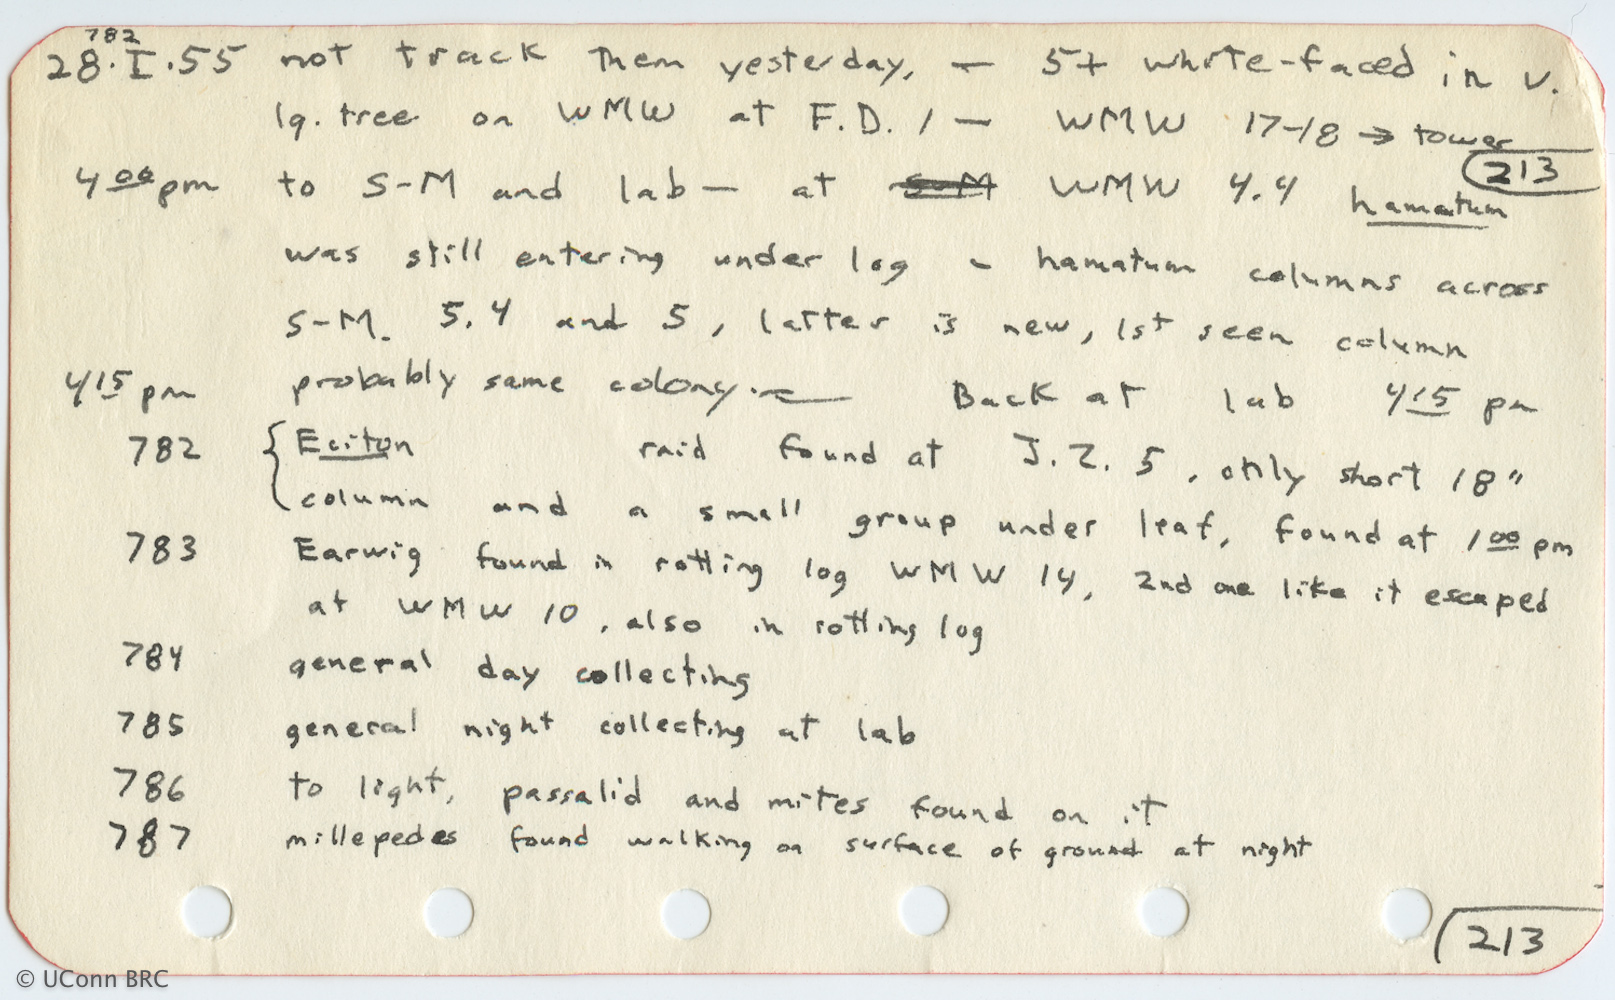 782
28.I.55 not track them yesterday, — 5+ white-faced in v.
lg. tree on WMW at F.D. 1 — WMW 17-18 → tower
213
4 00 pm to S-M and lab — at S-M WMW 4.4 hamatum
was still entering under log - hamatum columns across
S-M. 5.4 and 5, latter is new, 1st seen column
4 15 pm probably same colony. — Back at lab 4 15 pm
782 { Eciton raid found at J.Z. 5, only short 18"
column and a small group under leaf, found at 1 00 pm
783 Earwig found in rotting log WMW 14, 2nd one like it escaped
at WMW 10, also in rotting log
784 general day collecting
785 general night collecting at lab
786 to light, passalid and mites found on it
787 millepedes found walking on surface of ground at night
213
© UConn BRC